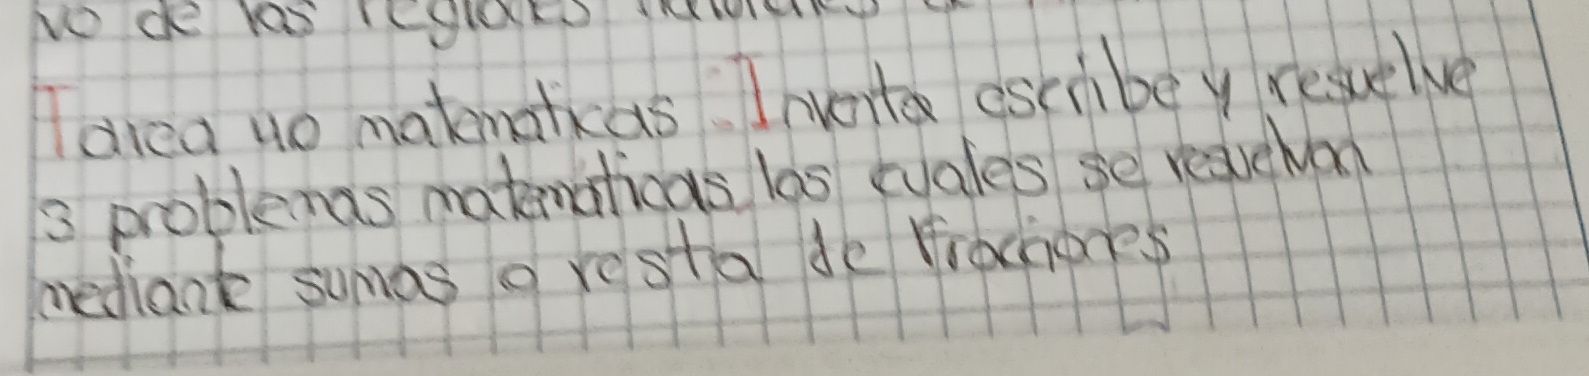 vo de las regiones naturales
Tarea no matematicas. Inventa escribe y resuelve
3 problemas matematicas las cuales se resuelvan
mediante sumas o resta de fracciones